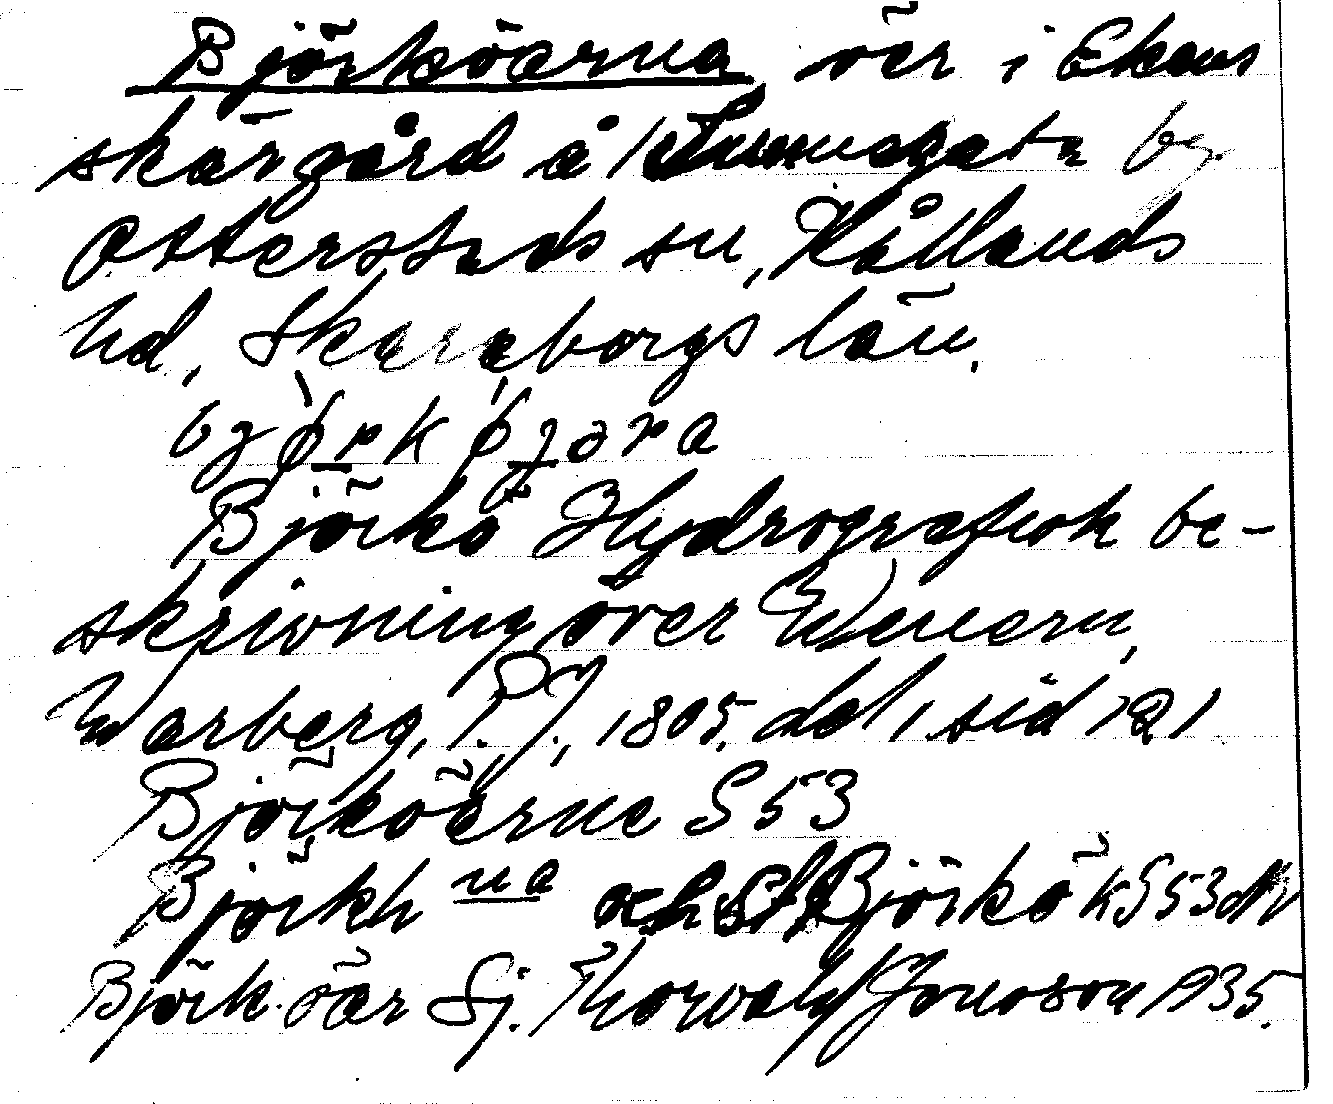 Björköarna öar i Ekens
skärgård å Sunnegata by
Otterstads sn, Kållands
hd, Skaraborgs län.
Björkö Hydrografisk be-
skrivning över Wenern,
Warberg, P.J., 1805. del 1 sid 121
Björköarne S53
Björkh na och St Björkö KS53dNV
Björk öar Sj. Thorvald Jonsson 1935.